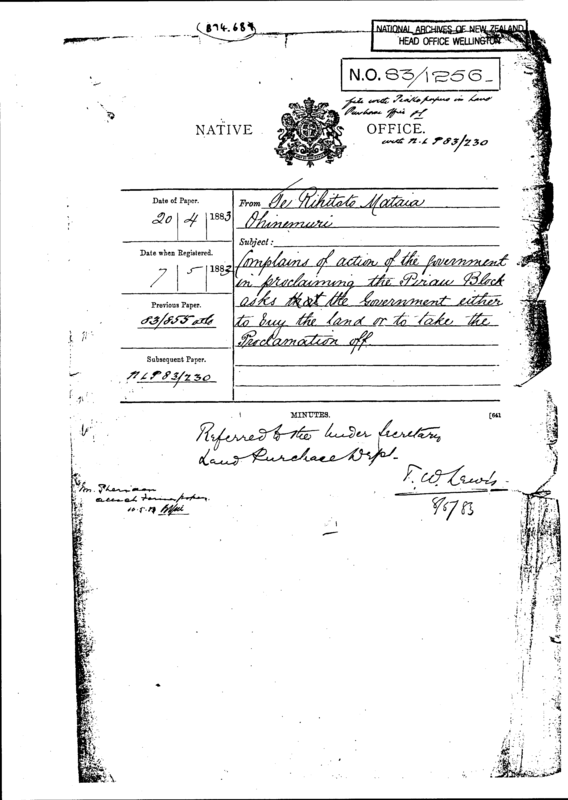 (874.681)
NATIONAL ARCHIVES OF NEW ZEALAND
HEAD OFFICE WELLINGTON
N.O. 83/1256
file with papers in Land
Purchase Office
with N.L.P 83/230
NATIVE OFFICE.
Date of Paper.
20 | 4 | 1883
Date when Registered.
7 | 5 | 1883
Previous Paper.
83/855
Subsequent Paper.
N L P 83/230
From Te Rihitoto Mataia
Ohinemuri
Subject:
Complains of action of the Government
in proclaiming the Pirau Block
asks that the Government either
to buy the land or to take the
Proclamation off.
MINUTES. [641
Referred to the Under Secretary
Land Purchase Dept.
T. W. Lewis
8/5/83
Mr. Sheridan
attach former papers
10.5.83